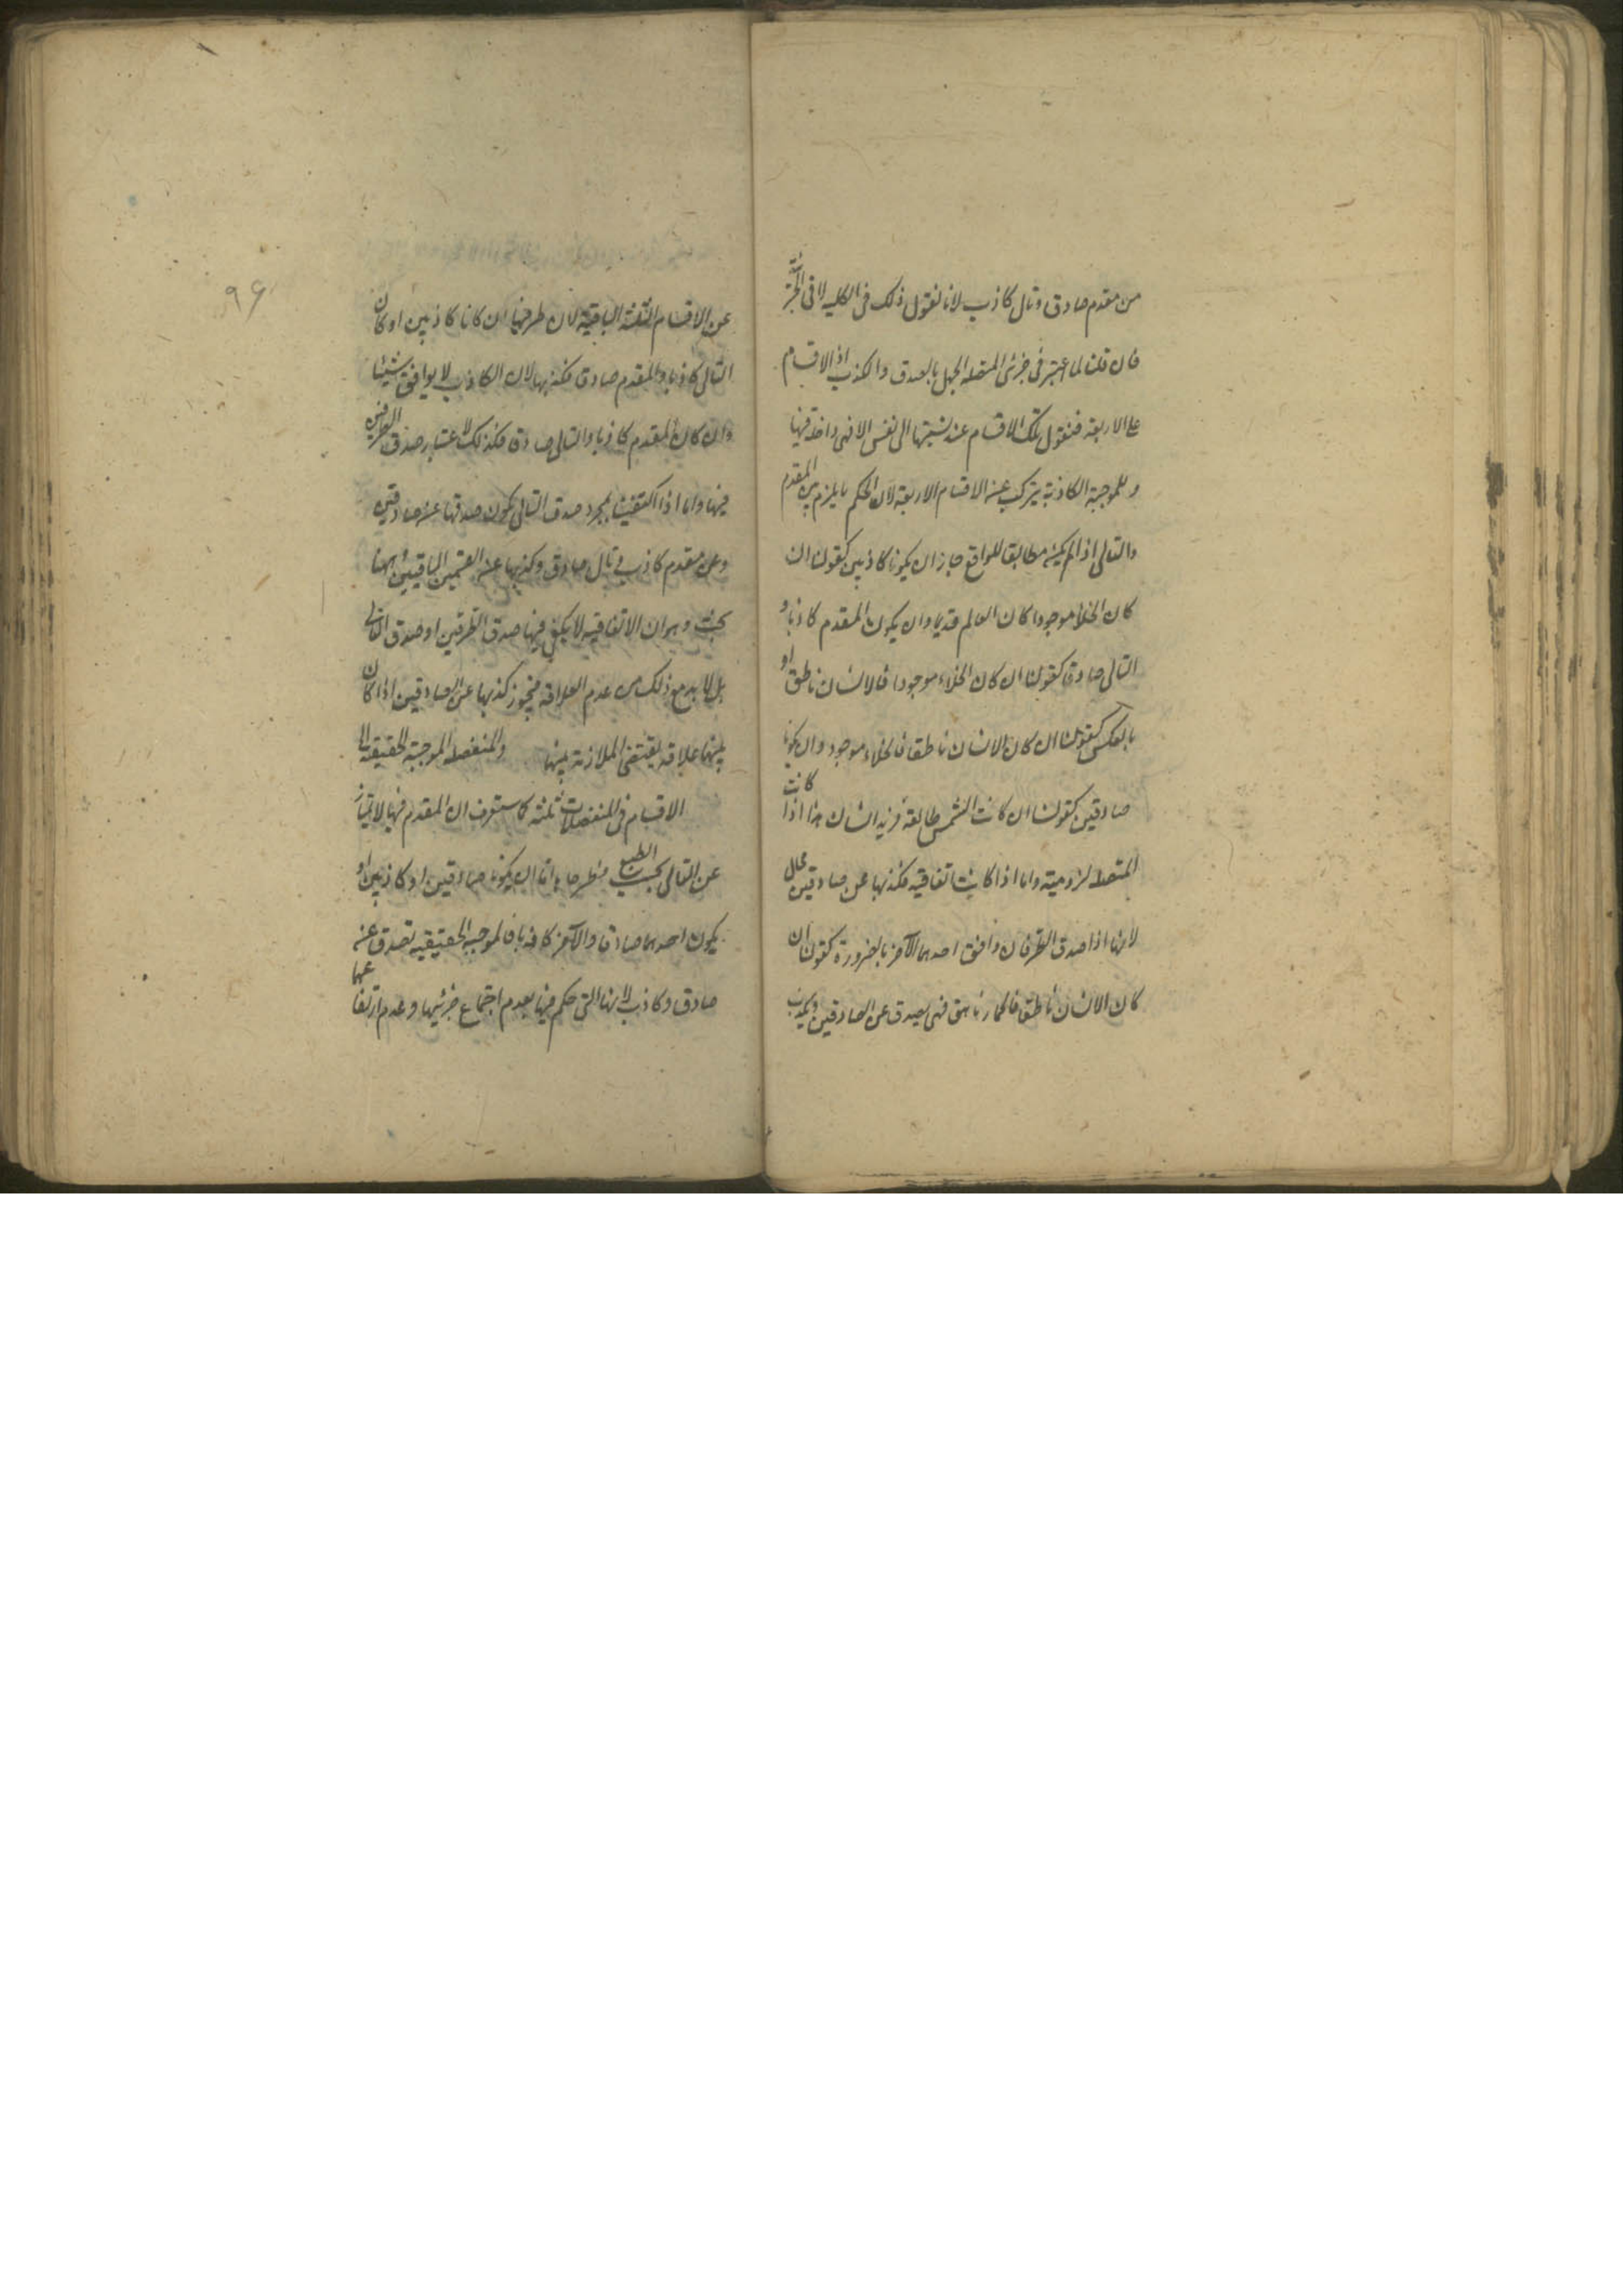 من مقدم صادق وتال كاذب لانا نقول ذلك فى الكليه لا فى الجزئية
فان قلت لما اعتبر فى جزئى المتصله الجهل بالصدق والكذب اذ الاقسام
على الاربعة فنقول تلك الاقسام عند نسبتها الى نفس الامر هى داخله فيها
والموجبة الكاذبة يتركب عنه الاقسام الاربعة لان الحكم بالزم بين المقدم
والتالى اذا لم يكن مطابقا للواقع جاز ان يكونا كاذبين كقولنا ان
كان الخلأ موجودا كان العالم قديما وان يكون المقدم كاذبا و
التالى صادقا كقولنا ان كان الخلاء موجودا فالانسان ناطق او
بالعكس كقولنا ان كان الانسان ناطقا فالخلاء موجود وان يكونا
صادقين كقولنا ان كانت الشمس طالعة فزيد انسان هذا اذا كانت
المتصله لزومية واما اذا كانت اتفاقيه فكذبها عن صادقين محال
لانه اذا صدق الطرفان وافق احدهما الآخر بالضرورة كقولنا ان
كان الانسان ناطقا فالحمار ناهق فهى يصدق عن الصادقين ويكذب
٩٦
عن الاقسام الثلثة الباقية لان طرفيها ان كانا كاذبين او كان
التالى كاذبا والمقدم صادقا فكذبها لان الكاذب لا يوافق شيئا
وان كان المقدم كاذبا والتالى صادقا فكذلك لاعتبار صدق الطرفين
فيها واما اذا اكتفينا بمجرد صدق التالى يكون صدقها عن صادقين
وعن مقدم كاذب وتال صادق وكذبها عن القسمين الباقيين وههنا
بحث وهو ان الاتفاقيه لا يكفى فيها صدق الطرفين او صدق التالى
بل لا بد مع ذلك من عدم العلاقة فيجوز كذبها عن الصادقين اذا كان
بينهما علاقة يقتضى الملازمة بينها والمنفصله الموجبة الحقيقة الى
الاقسام فى المنفصلات ثلثه كما ستعرف ان المقدم فيها لا يمتاز
عن التالى بحسب الطبع فطرفاها اما ان يكونا صادقين او كاذبين او
يكون احدهما صادقا والآخر كاذبا فالموجبه الحقيقيه تصدق عن
صادق وكاذب لانها التى حكم فيها بعدم اجتماع جزئيها وعدم ارتفاعهما